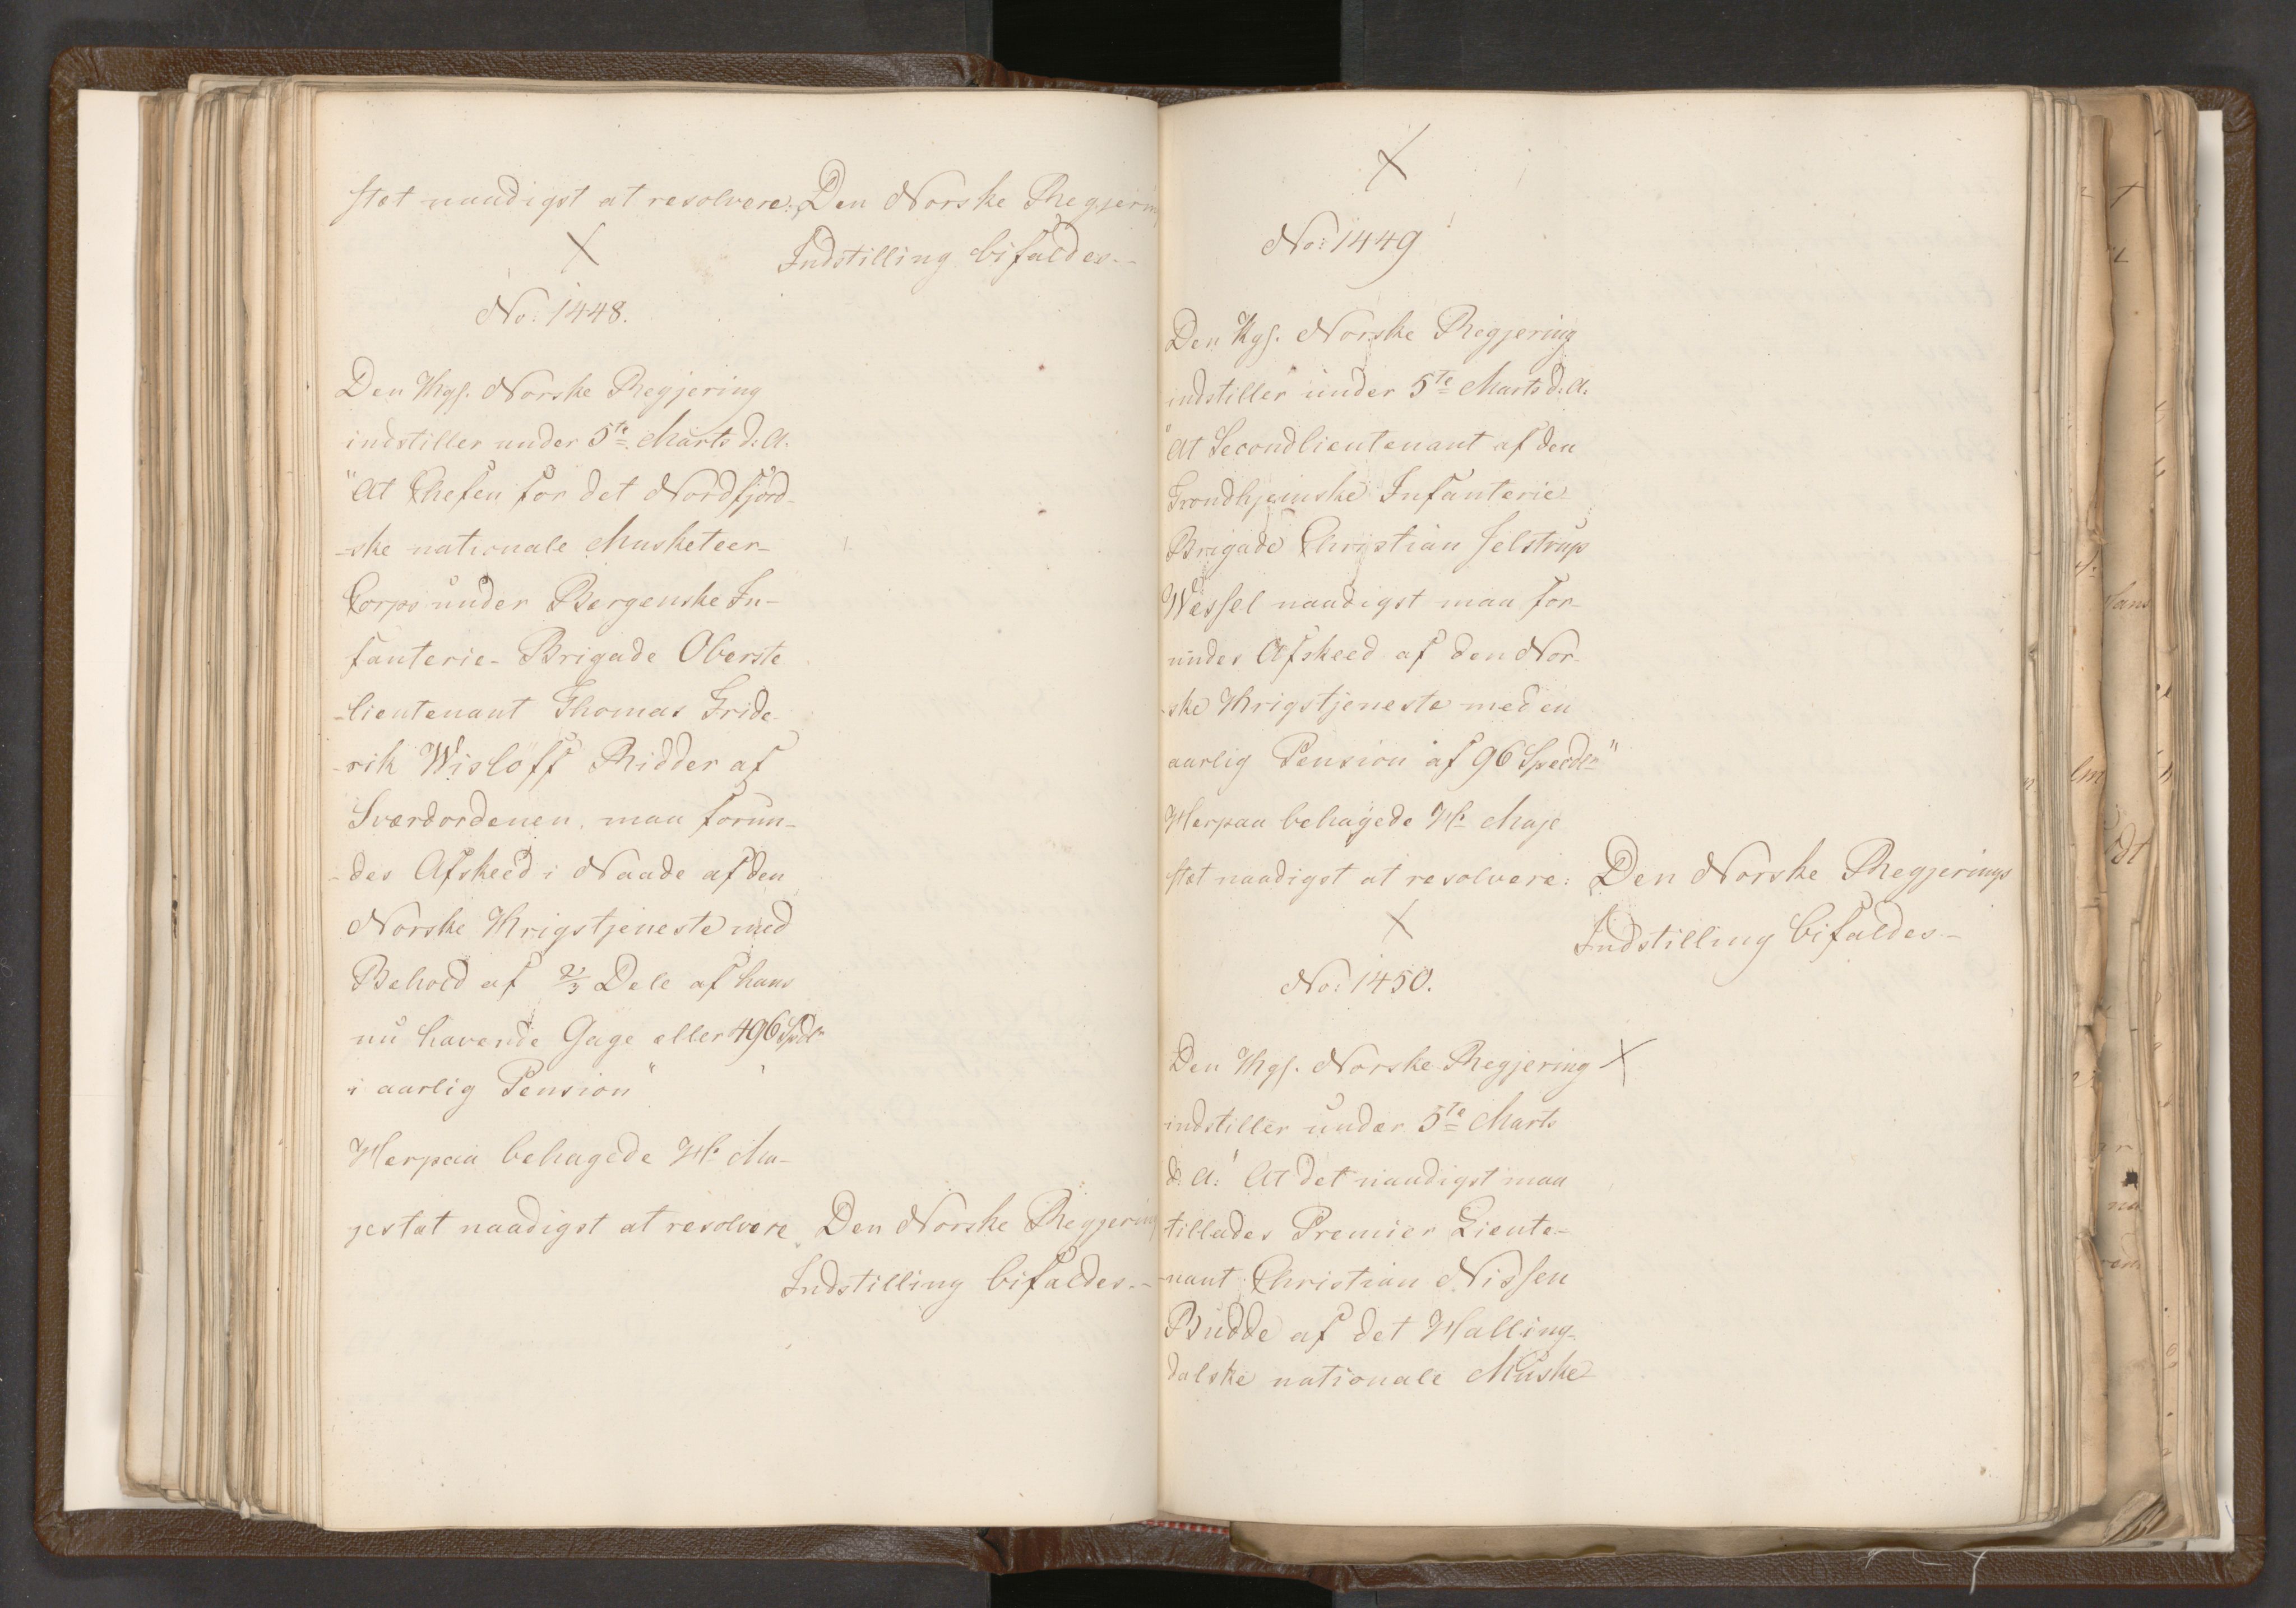 stæt naadigst at resolvere: Den Norske Regjerin
Indstilling bifaldes.—
No: 1448.
Den Kgs. Norske Regjering
indstiller under 5te Marts d. A.
"At Chefen for det Nordfjord-
-ske nationale Musketeer-
Corps under Bergenske In-
fanterie-Brigade Oberste
-lieutenant Thomas Fride-
-rik Wisløff Ridder af
Sværdordenen, maa forun-
-des Afskeed i Naade af den
Norske Krigstjeneste med
Behold af 2/3 Dele af hans
nu havende Gage eller 496 Spdlr
i aarlig Pension"
Herpaa behagede Hs Ma-
jestæt naadigst at resolvere "Den Norske Regjering
Indstilling bifaldes.—
No: 1449
Den Kgs. Norske Regjering
indstiller under 5te Marts d. A.
"At Secondlieutenant af den
Trondhjemske Infanterie
Brigade Christian Jelstrup
Wessel naadigst maa for-
undes Afskeed af den Nor-
-ske Krigstjeneste med en
aarlig Pension af 96 Specdlr"
Herpaa behagede Hs Maje
stæt naadigst at resolvere: Den Norske Regjerings
Indstilling bifaldes—
No: 1450.
Den Kgs. Norske Regjering
indstiller under 5te Marts
d. A: "At det naadigst maa
tillades Premier Lieute-
-nant Christian Nissen
Budde af det Halling-
dalske nationale Muske